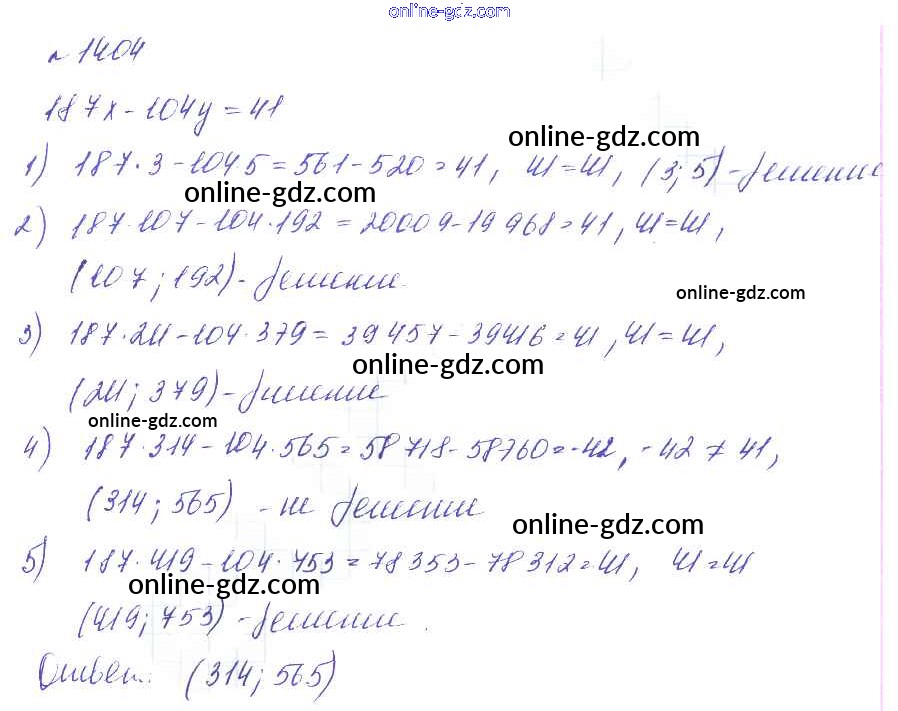 online-gdz.com
№ 1404
187x - 104y = 41
online-gdz.com
1) 187·3 - 104 5 = 561 - 520 = 41, 41 = 41, (3; 5) - решение
online-gdz.com
2) 187·107 - 104·192 = 20009 - 19968 = 41, 41 = 41,
(107; 192) - решение
online-gdz.com
3) 187·211 - 104·379 = 39457 - 39416 = 41, 41 = 41,
online-gdz.com
(211; 379) - решение
online-gdz.com
4) 187·314 - 104·565 = 58718 - 58760 = -42, -42 ≠ 41,
(314; 565) - не решение
online-gdz.com
5) 187·419 - 104·753 = 78353 - 78312 = 41, 41 = 41
online-gdz.com
(419; 753) - решение.
Ответ: (314; 565)